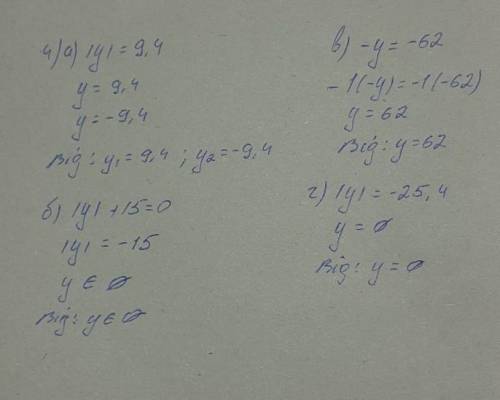 4)а) |y| = 9,4
y = 9,4
y = -9,4
Від: y₁ = 9,4 ; y₂ = -9,4
б) |y| +15=0
|y| = -15
y ∈ ∅
Від: y ∈ ∅
в) -y = -62
-1(-y) = -1(-62)
y = 62
Від: y = 62
г) |y| = -25,4
y = ∅
Від: y = ∅